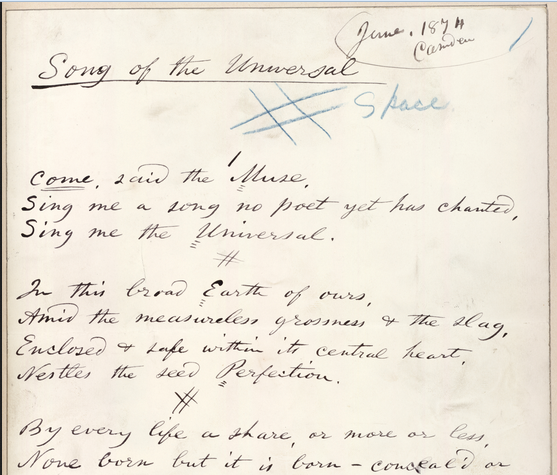 June, 1874
Camden
Song of the Universal
# Space
1
Come, said the Muse,
Sing me a song no poet yet has chanted,
Sing me the Universal.
#
In this broad Earth of ours,
Amid the measureless grossness & the slag,
Enclosed & safe within its central heart,
Nestles the seed Perfection.
#
By every life a share, or more or less,
None born but it is born - concealed or